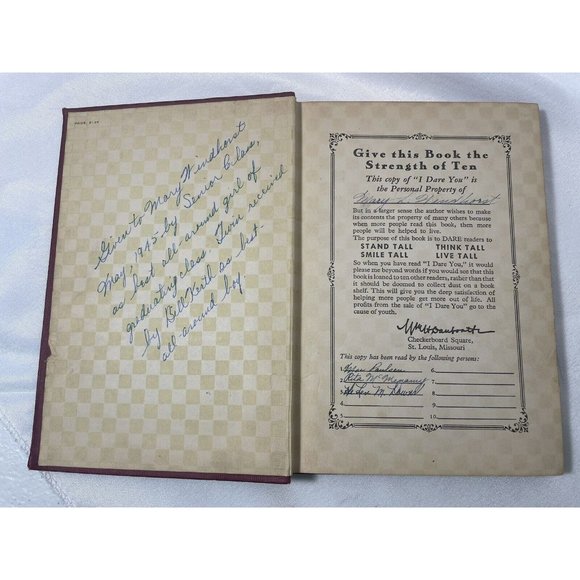 Given to Mary Windhorst
May, 1945 by Senior Class,
as best all-around girl of
graduating class. Twin received
by Bill Keith as best
all-around boy.
Give this Book the
Strength of Ten
This copy of "I Dare You" is
the Personal Property of
Mary L. Windhorst
But in a larger sense the author wishes to make
its contents the property of many others because
when more people read this book, then more
people will be helped to live.
The purpose of this book is to DARE readers to
STAND TALL THINK TALL
SMILE TALL LIVE TALL
So when you have read "I Dare You", it would
please me beyond words if you would not that this
book is loaned to ten other readers, rather than
that it should be doomed to collect dust on a book
shelf. This will give you the deep satisfaction of
helping more people get more out of life. All
profits from the sale of "I Dare You" go to the
cause of youth.
Wm H Danforth
Checkerboard Square,
St. Louis, Missouri
This copy has been read by the following persons:
1. 6.
2. Rita McMenamy 7.
3. M. 8.
4. 9.
5. 10.